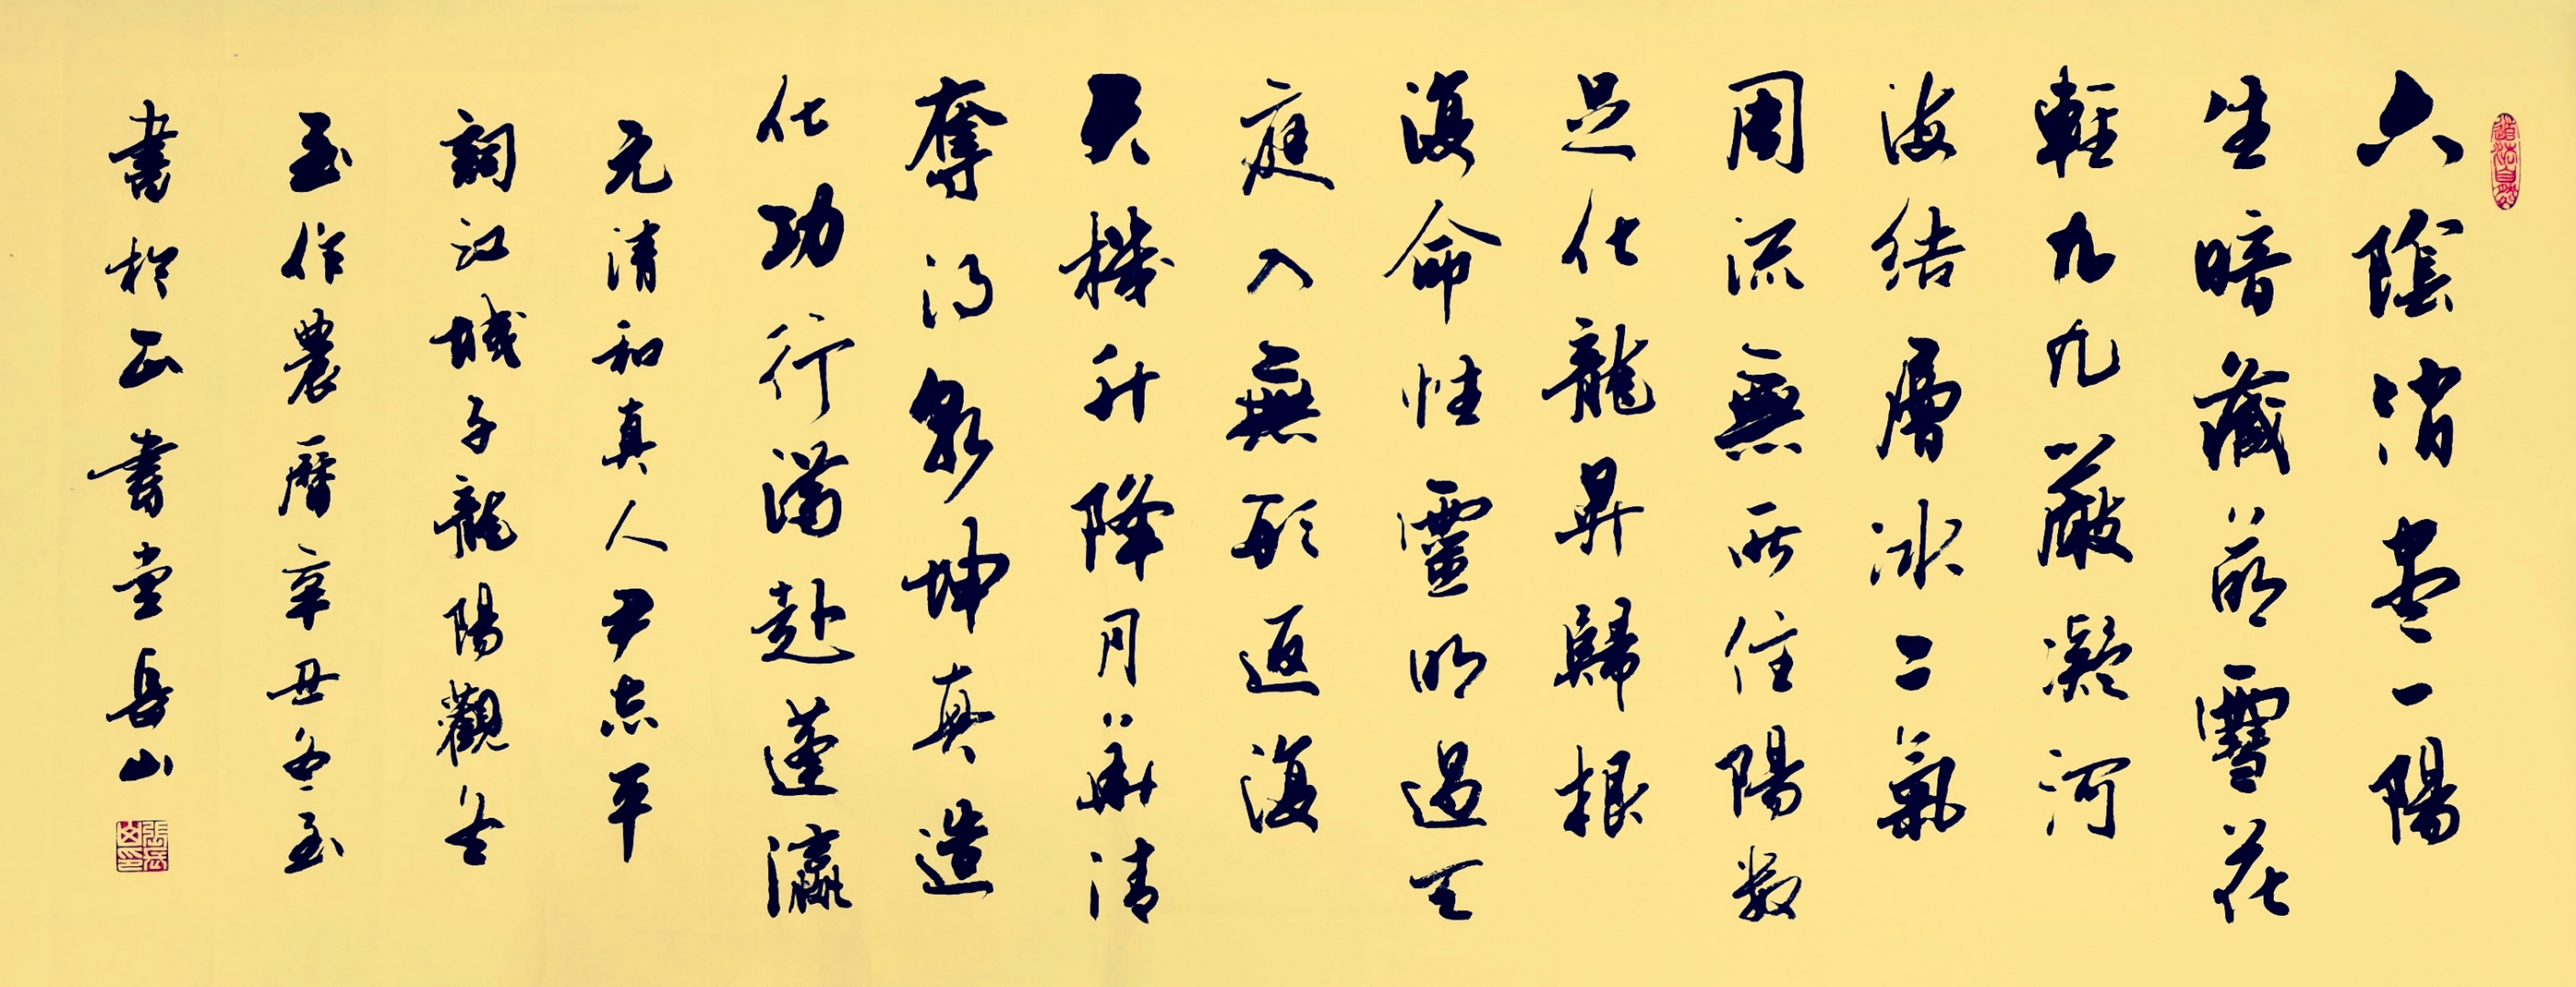 道法自然
六陰消盡一陽
生暗藏萌雪花
輕九九嚴凝河
海結層冰二氣
周流無所住陽數
足化龍昇歸根
復命性靈明過天
庭入無形返復
天機升降月華清
奪得乾坤真造
化功行滿赴蓬瀛
元清和真人尹志平
詞江城子龍陽觀冬
至作農曆辛丑冬至
書於正書堂岳山
張岳山印